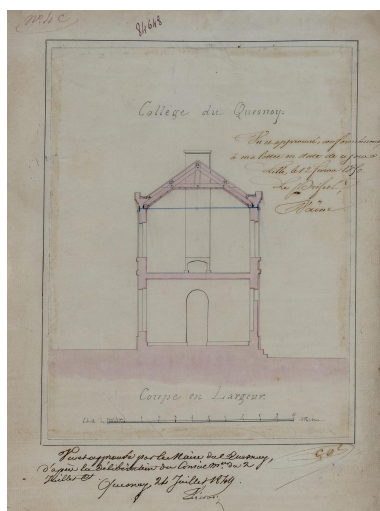 N° 4 C
84648
Collège du Quesnoy.
Vu et approuvé conformément
à ma lettre en date de ce jour
Lille, le 12 février 1850
Le Préfet,
Coupe en Largeur
Vu et approuvé par le Maire du Quesnoy,
d'après la délibération du Conseil m.al du 2
Juillet Ct
Quesnoy, 24 Juillet 1849.